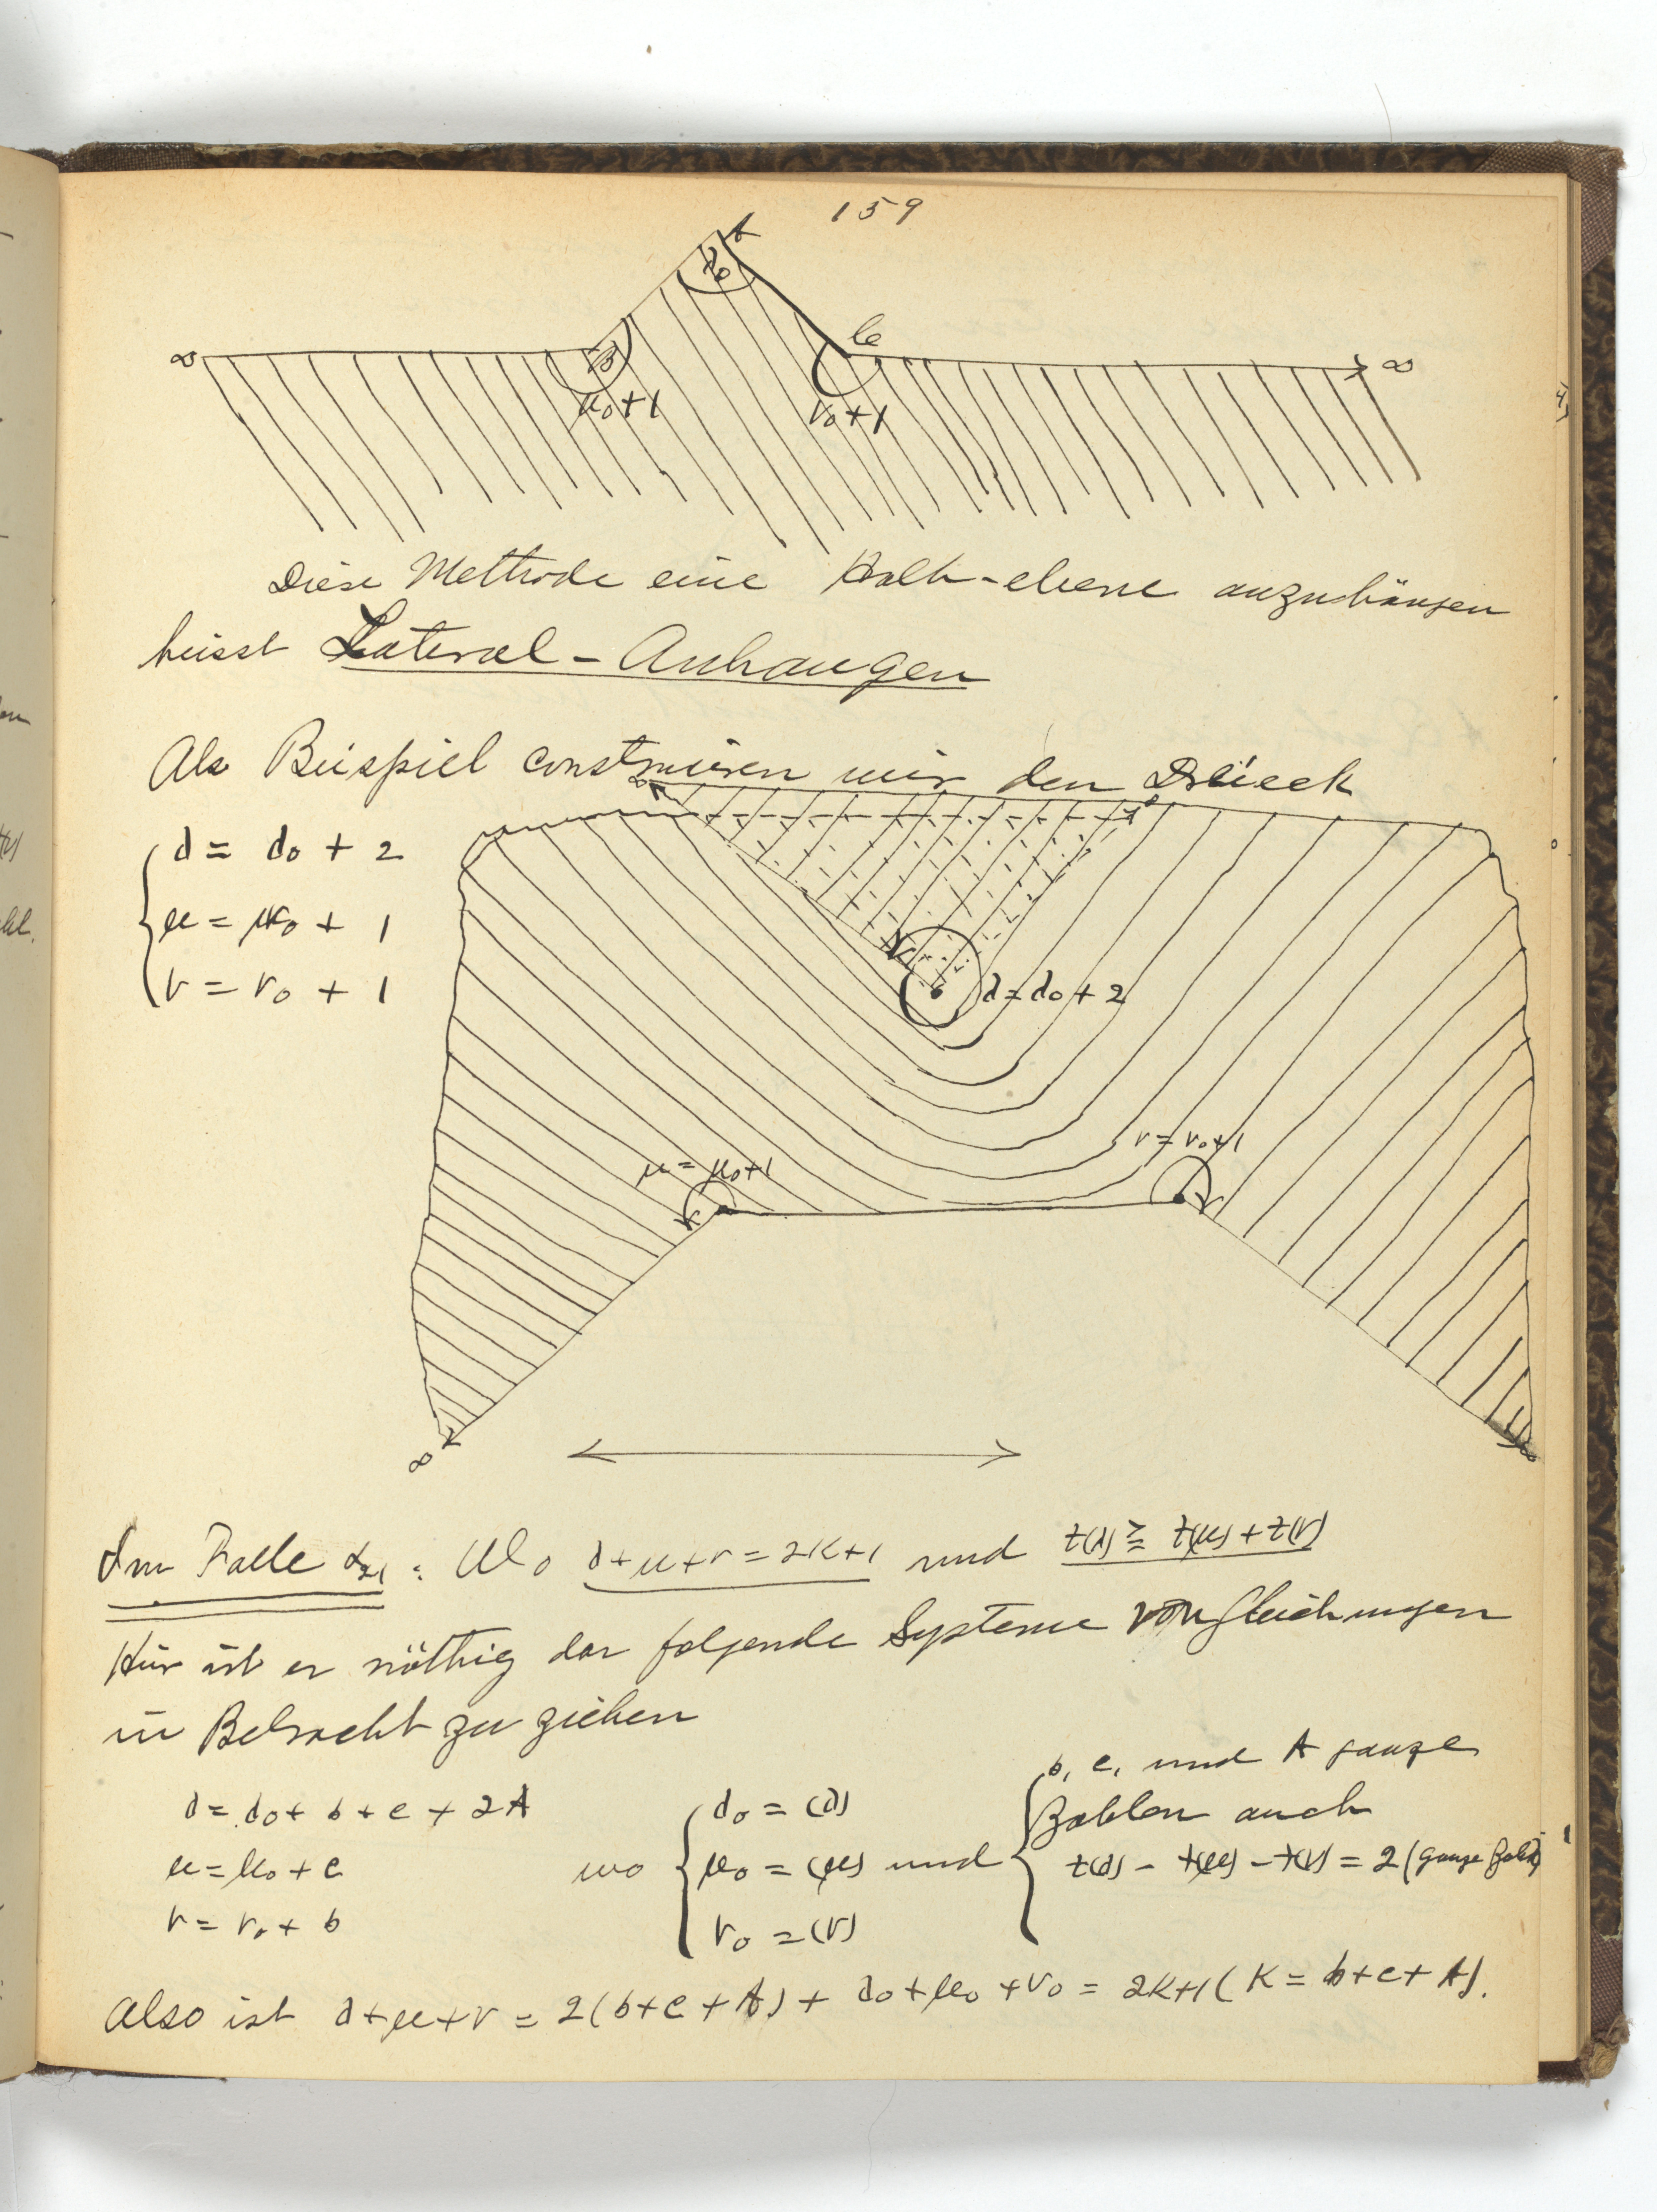 159
A
λ₀
∞ B C ∞
μ₀+1 ν₀+1
Diese Methode eine Halb-ebene anzuhängen
heisst Lateral-Anhangen
Als Beispiel construiren wir den Dreieck
λ = λ₀ + 2
μ = μ₀ + 1
ν = ν₀ + 1
λ = λ₀ + 2
μ = μ₀+1
ν = ν₀+1
∞ ∞
Im Falle : Wo λ+μ+ν = 2K+1 und t(λ) ≧ t(μ) + t(ν)
Hier ist es nöthig das folgende Systeme von Gleichungen
in Betracht zu ziehen
λ = λ₀ + b + c + 2A
μ = μ₀ + c
ν = ν₀ + b
wo
λ₀ = (λ)
μ₀ = (μ)
ν₀ = (ν)
und
b, c, und A ganze
Zahlen auch
t(λ) - t(μ) - t(ν) = 2 (ganze Zahl)
Also ist λ+μ+ν = 2(b+c+A) + λ₀+μ₀+ν₀ = 2K+1 (K = b+c+A).